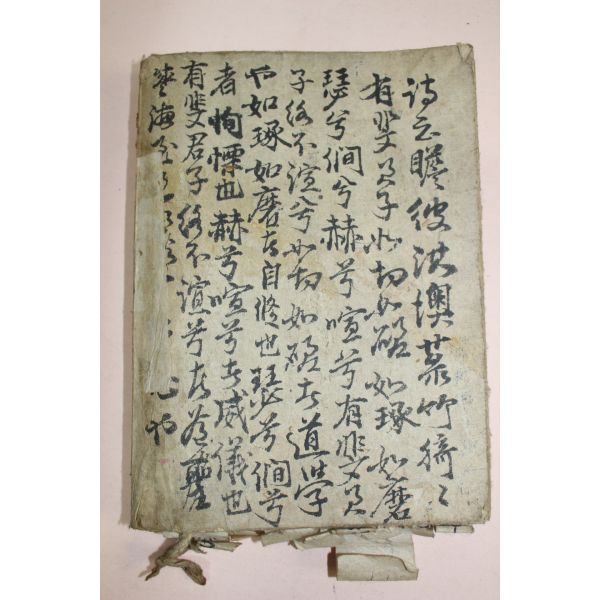 詩云瞻彼淇澳菉竹猗〻
有斐君子如切如磋如琢如磨
瑟兮僩兮赫兮喧兮有斐君
子終不諠兮如切如磋者道學
也如琢如磨者自修也瑟兮僩兮
者恂慄也赫兮喧兮者威儀也
有斐君子終不諠兮者道盛